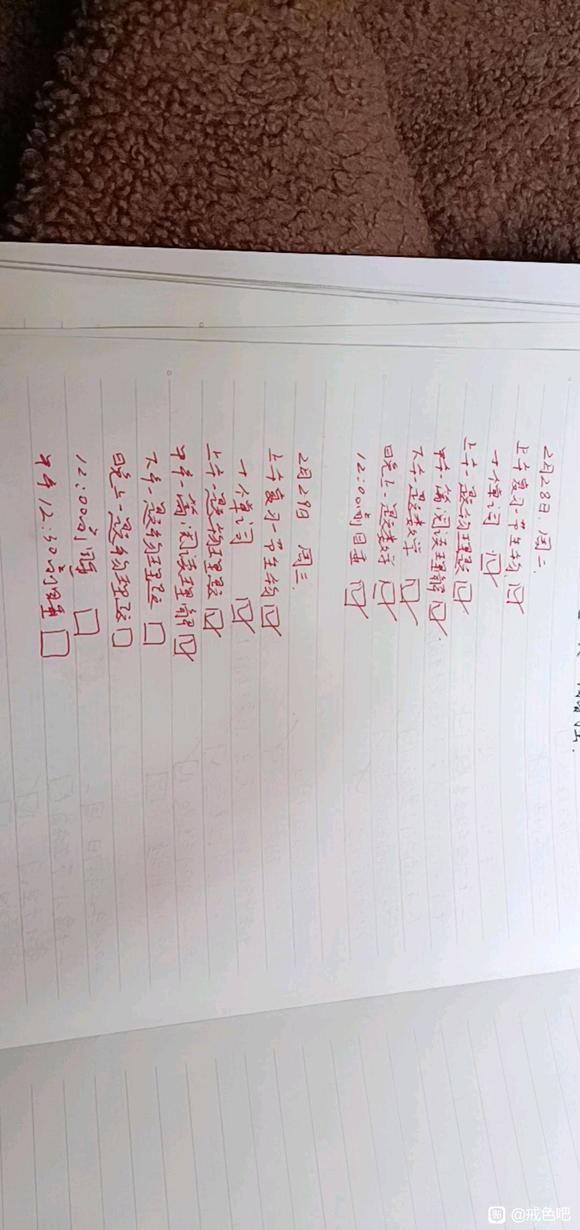 2月28日 周二
上午复习一节生物 ☑
十个单词 ☑
上午一题物理题 ☑
中午一篇阅读理解 ☑
下午一题数学 ☑
晚上一题数学 ☑
12:00前睡 ☑
2月29日 周三
上午复习一节生物 ☑
十个单词 ☑
上午一题物理题 ☑
中午一篇阅读理解 ☑
下午一题物理题 ☐
晚上一题物理题 ☐
12:00前睡 ☐
中午12:30前睡 ☐
贴 @戒色吧